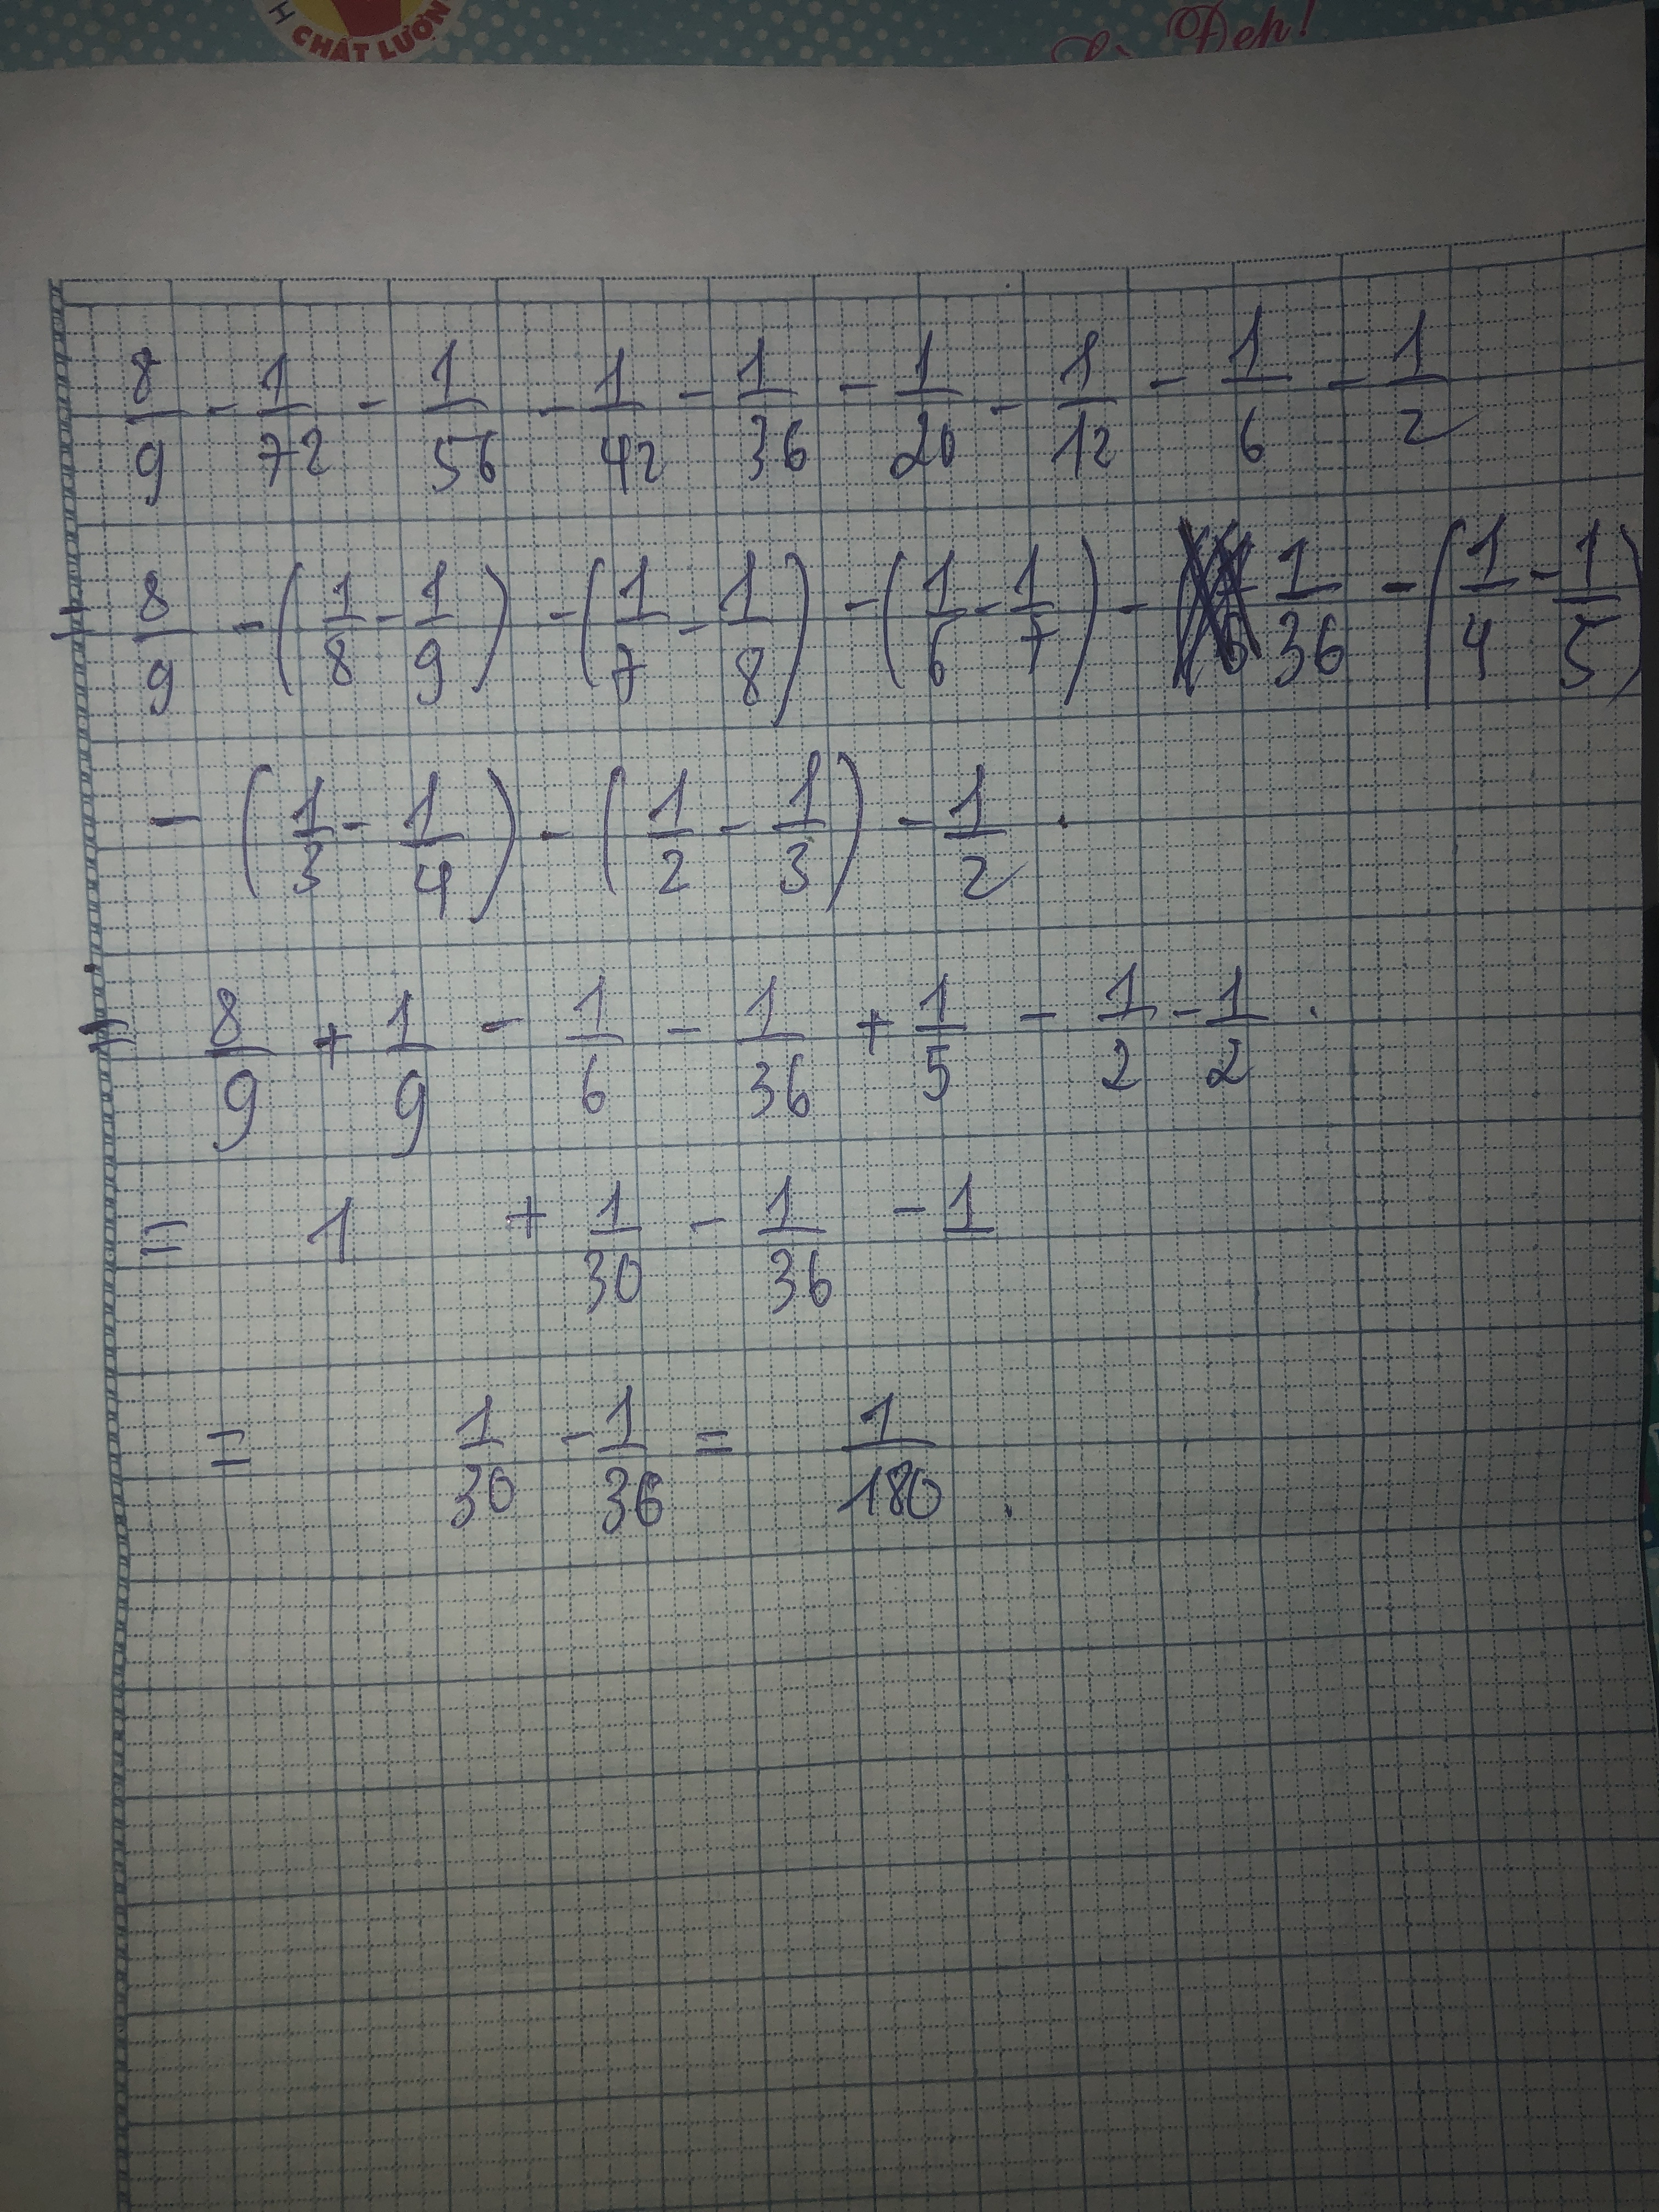 CHẤT LƯỢN
Đẹp!
8/9 - 1/72 - 1/56 - 1/42 - 1/36 - 1/20 - 1/12 - 1/6 - 1/2
= 8/9 - (1/8 - 1/9) - (1/7 - 1/8) - (1/6 - 1/7) - 1/36 - (1/4 - 1/5)
- (1/3 - 1/4) - (1/2 - 1/3) - 1/2 .
= 8/9 + 1/9 - 1/6 - 1/36 + 1/5 - 1/2 - 1/2 .
= 1 + 1/30 - 1/36 - 1
= 1/30 - 1/36 = 1/180 .